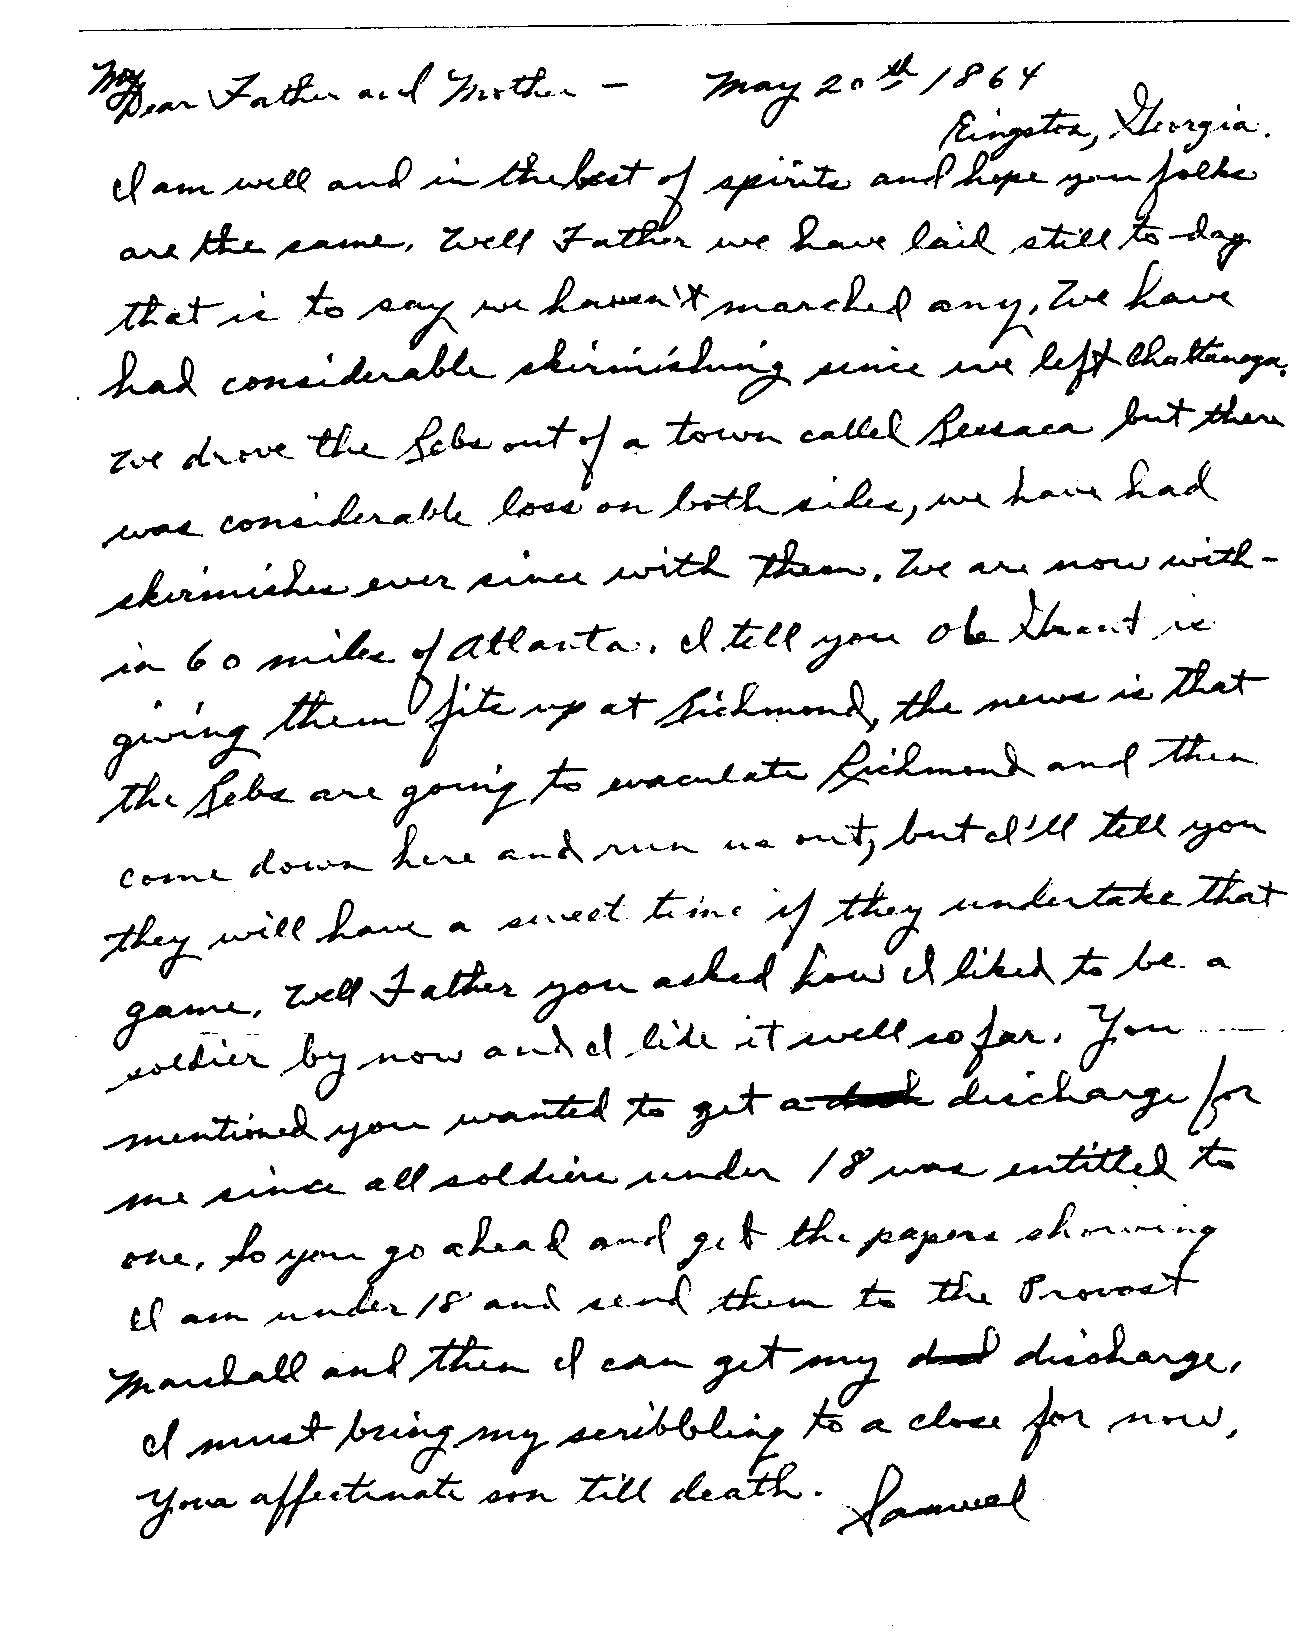 My Dear Father and Mother — May 20th 1864
Kingston, Georgia.
I am well and in the best of spirits and hope you folks
are the same. Well Father we have laid still to-day
that is to say we haven't marched any. We have
had considerable skirmishing since we left Chattanoga.
We drove the Rebs out of a town called Ressaca but there
was considerable loss on both sides, we have had
skirmishes ever since with them. We are now with-
in 60 miles of Atlanta. I tell you Ole Grant is
giving them fits up at Richmond, the news is that
the Rebs are going to evaculate Richmond and then
come down here and run us out, but I'll tell you
they will have a sweet time if they undertake that
game. Well Father you asked how I liked to be a
soldier by now and I like it well so far. You
mentioned you wanted to get a discharge for
me since all soldiers under 18 was entitled to
one. So you go ahead and get the papers showing
I am under 18 and send them to the Provost
Marshall and then I can get my discharge.
I must bring my scribbling to a close for now.
Your affectinate son till death. Samuel